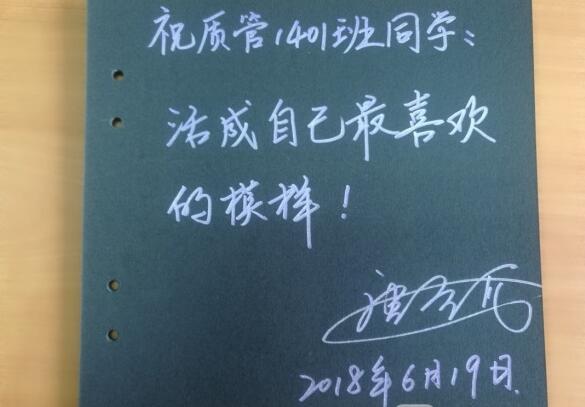 祝质管1401班同学：
活成自己最喜欢
的模样！
2018年6月19日.